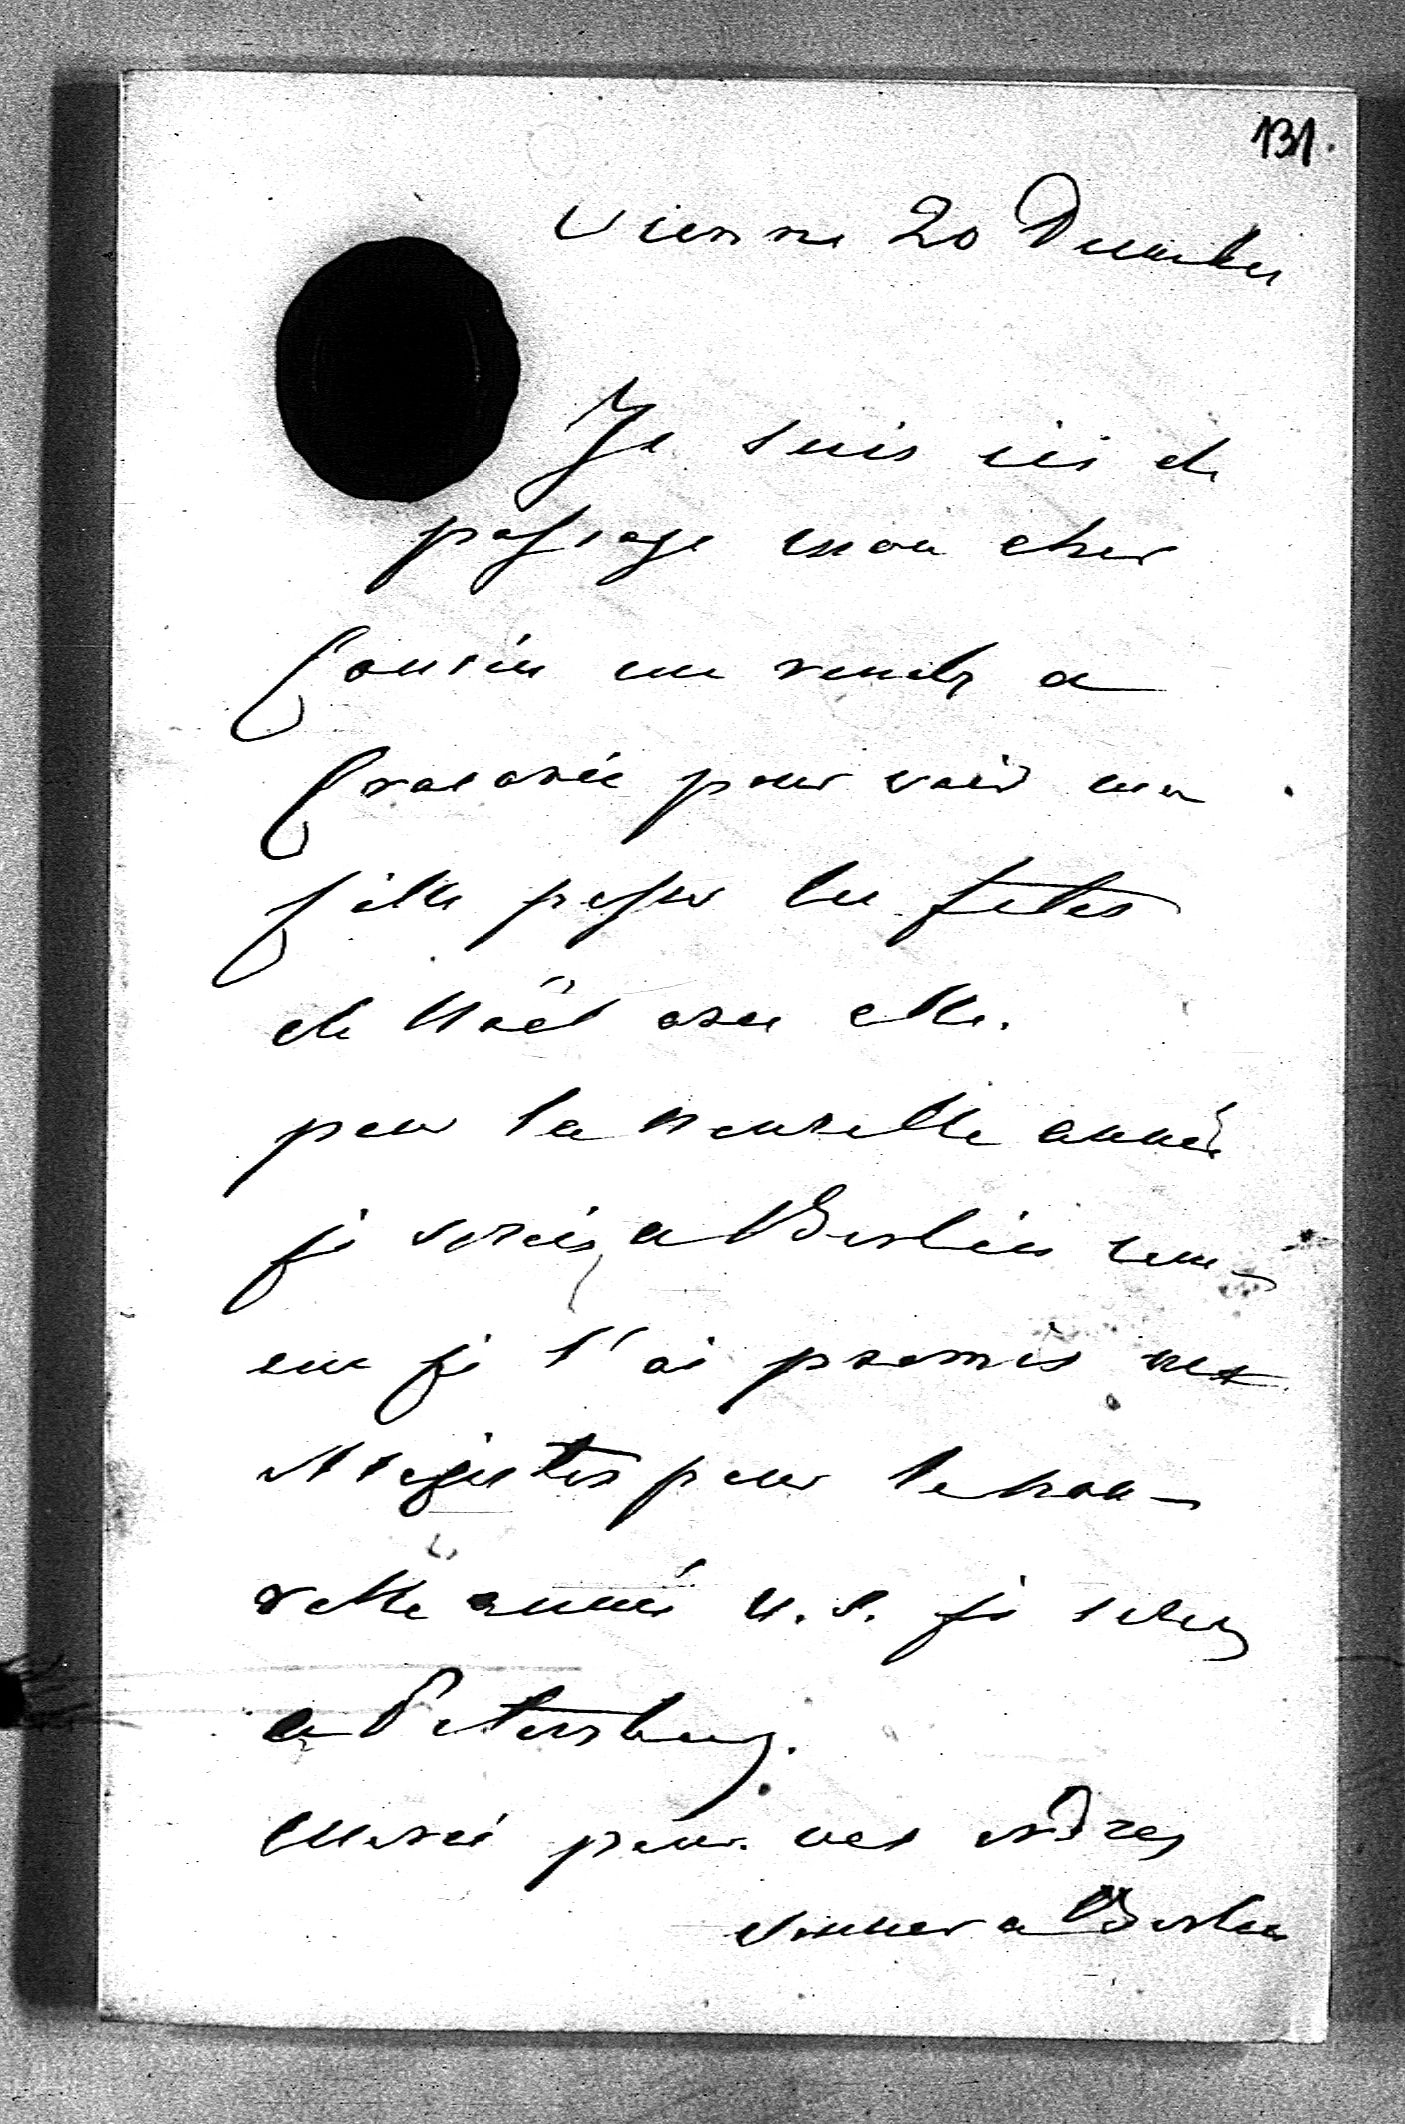 131.
Vienne 20 Decembre
Je suis ici de
passage mon cher
Cousin me rends a
Cracovie pour voir ma
fille passer les fetes
de Noël avec elle.
pour la nouvelle année
je serais a Berlin com-
me je l'ai promis aux
Majestes pour la nou-
velle année n.s. je serais
a Petersburg.
Merci pour vos ordres
donner a Berlin